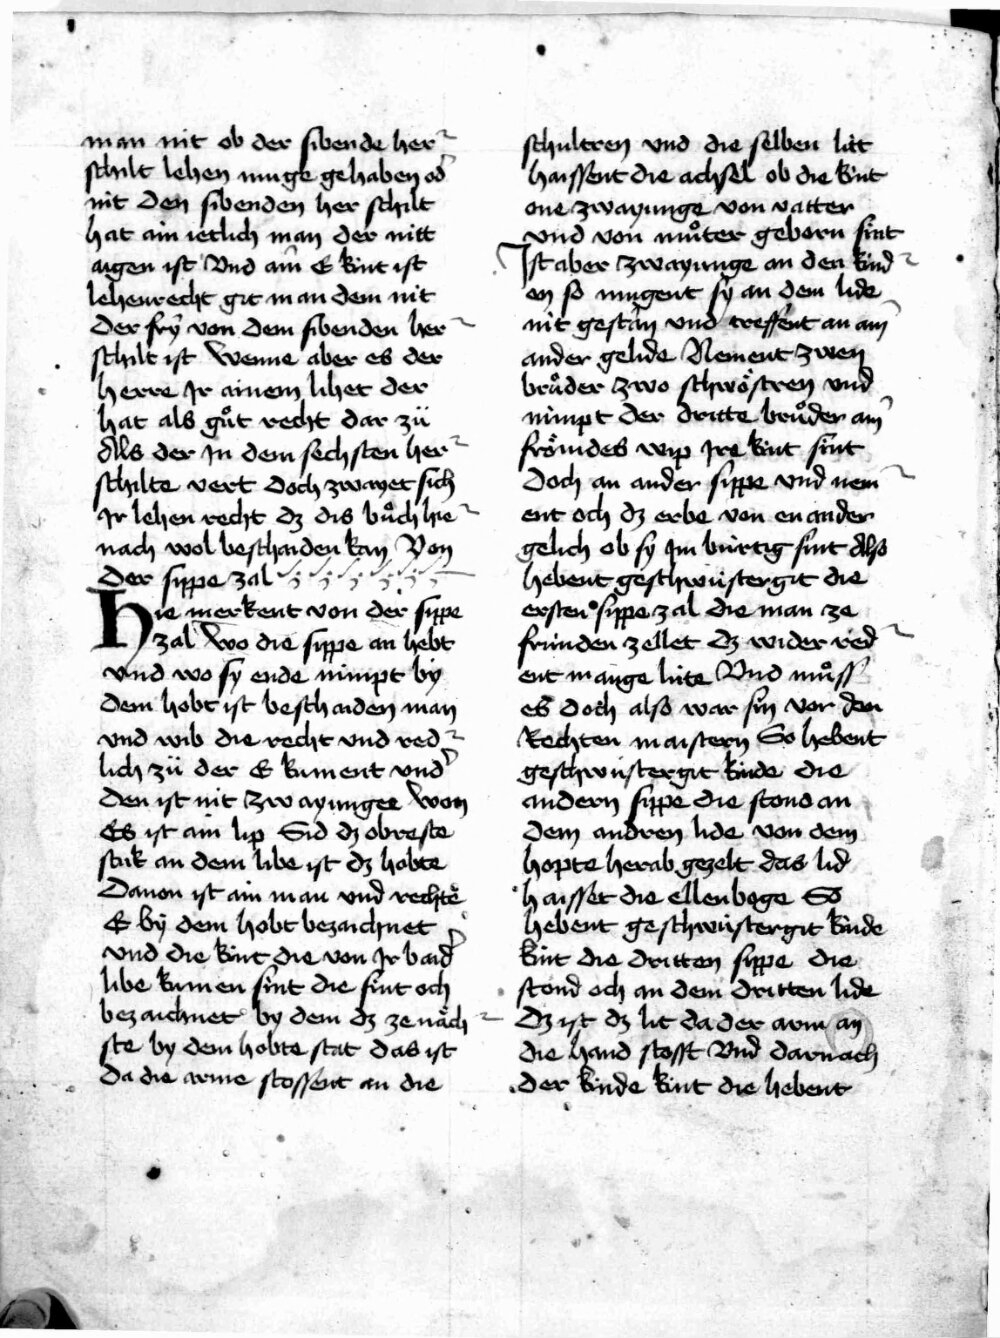 man nit ob der sibende her¬
schilt lehen muge gehaben od̾
nit Den sibenden her schilt
hat ain ietlich man der nitt
aigen ist Vnd ain E kint ist
lehenrecht git man dem nit
Der frÿ von dem sibenden her¬
schilt ist Wenne aber es der
herre Ir ainem lihet der
hat als gůt recht dar zü
Alls der In dem sechsten her¬
schilte vert Doch zwayet sich
Ir lehen recht dz dis bůch hie¬
nach wol beschaiden kan Von
der sippe zal
Hie merkent von der sippe
zal Wo die sippe an hebt
vnd wo sy ende nimpt by
dem hobt ist beschaiden man
vnd wib die recht vnd red¬
lich zü der E kument vnd̾
den ist nit zwayunge Won
Es ist ain lip Sid dz obreste
stuk an dem libe ist dz hobte
Dauon ist ain man vnd rechte
E bÿ dem hobt bezaichnet
vnd die kint die von Ir baid̾
libe kumen sint die sint och
bezaichnet by dem dz ze näch¬
ste by dem hobte stat das ist
da die arme stossent an die
schultren vnd die selben litt
haissent die achsel ob die kint
one zwayunge von vatter
vnd von můter geborn sint
Ist aber zwayunge an den kind¬
en so mugent sÿ an dem lide
nit gestan vnd treffent an ain
ander gelide Nement zwen
brůder zwo schwöstren vnd
nimpt der dritte brůder ain
frömdes wip Ire kint sint
Doch an ander sippe vnd nem¬
ent och dz erbe von enander
gelich ob sy Im bürtig sint Also
hebent geschwüstergit die
ersten sippe zal die man ze
frunden zellet dz wider red¬
ent mange lüte Vnd můss
es doch also war sin vor den
Rechten maistern So hebent
geschwüstergit kinde die
andern sippe die stond an
dem andren lide von dem
hopte herab gezelt das lid
haisset die ellenboge So
hebent geschwüstergit kinde
kint die dritten sippe die
stond och an dem dritten lide
Dz ist dz lit da der arm an
die hand stosst Vnd darnach
der kinde kint die hebent